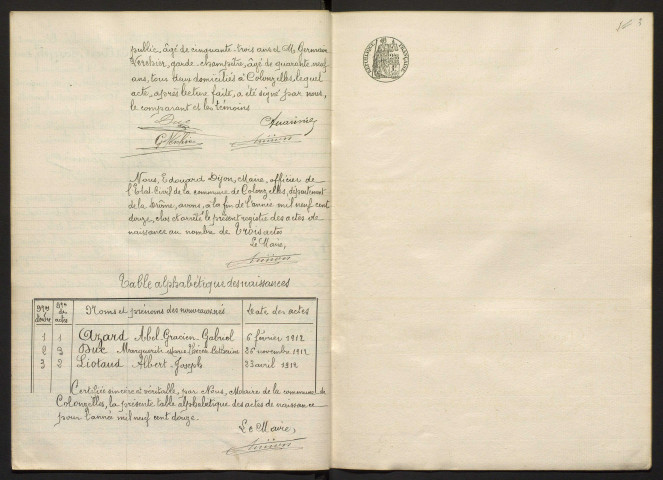 public, âgé de cinquante-trois ans et M. Germain
Verchier, garde-champêtre, âgé de quarante neuf
ans, tous deux domiciliés à Colonzelles, lequel
acte, après lecture faite, a été signé par nous,
le comparant et les témoins
Nous, Edouard Dijon, Maire, officier de
l'Etat-Civil de la commune de Colonzelles, département
de la Drôme, avons, à la fin de l'année mil neuf cent
douze, clos et arrêté le présent registre des actes de
naissance au nombre de trois actes
Le Maire,
Table alphabétique des naissances
Nos d'ordre Nos des actes Noms et prénoms des nouveaux-nés Date des actes
1 1 Azard Abel Gracien Gabriel 6 février 1912
2 3 Duc Marguerite 26 novembre 1912
3 2 Liotaud Albert-Joseph 23 avril 1912
Certifiée sincère et véritable, par Nous, Maire de la commune de
Colonzelles, la présente table alphabétique des actes de naissance
pour l'année mil neuf cent douze.
Le Maire,
3